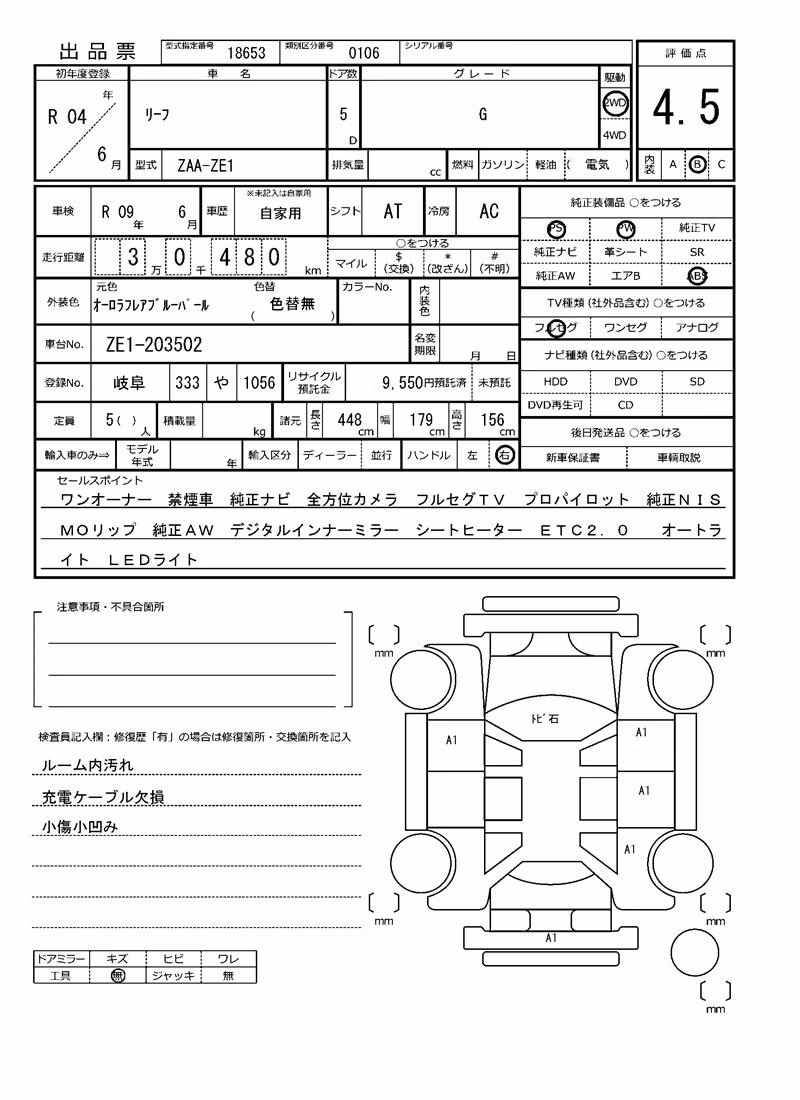 出品票 型式指定番号 18653 類別区分番号 0106 シリアル番号
評価点
4.5
内装 A B C
初年度登録 車名 ドア数 グレード 駆動
R 04 年 6 月 リーフ 5 D G 2WD
4WD
型式 ZAA-ZE1 排気量 cc 燃料 ガソリン 軽油 ( 電気 )
車検 R 09 年 6 月 車歴 ※未記入は自家用 自家用 シフト AT 冷房 AC
走行距離 3 万 0 千 4 8 0 km ○をつける
マイル $(交換) *(改ざん) #(不明)
外装色 元色 オーロラフレアブルーパール 色替 ( 色替無 ) カラーNo. 内装色
車台No. ZE1-203502 名変期限 月 日
登録No. 岐阜 333 や 1056 リサイクル預託金 9,550円預託済 未預託
定員 5( ) 人 積載量 kg 諸元 長さ 448 cm 幅 179 cm 高さ 156 cm
輸入車のみ⇒ モデル年式 年 輸入区分 ディーラー 並行 ハンドル 左 右
純正装備品 ○をつける
PS PW 純正TV
純正ナビ 革シート SR
純正AW エアB ABS
TV種類(社外品含む)○をつける
フルセグ ワンセグ アナログ
ナビ種類(社外品含む)○をつける
HDD DVD SD
DVD再生可 CD
後日発送品 ○をつける
新車保証書 車輌取説
セールスポイント
ワンオーナー 禁煙車 純正ナビ 全方位カメラ フルセグTV プロパイロット 純正NIS
MOリップ 純正AW デジタルインナーミラー シートヒーター ETC2.0 オートラ
イト LEDライト
注意事項・不具合箇所
検査員記入欄:修復歴「有」の場合は修復箇所・交換箇所を記入
ルーム内汚れ
充電ケーブル欠損
小傷小凹み
ドアミラー キズ ヒビ ワレ
工具 無 ジャッキ 無
mm mm
トビ石
A1 A1
A1
A1
mm mm
A1
mm